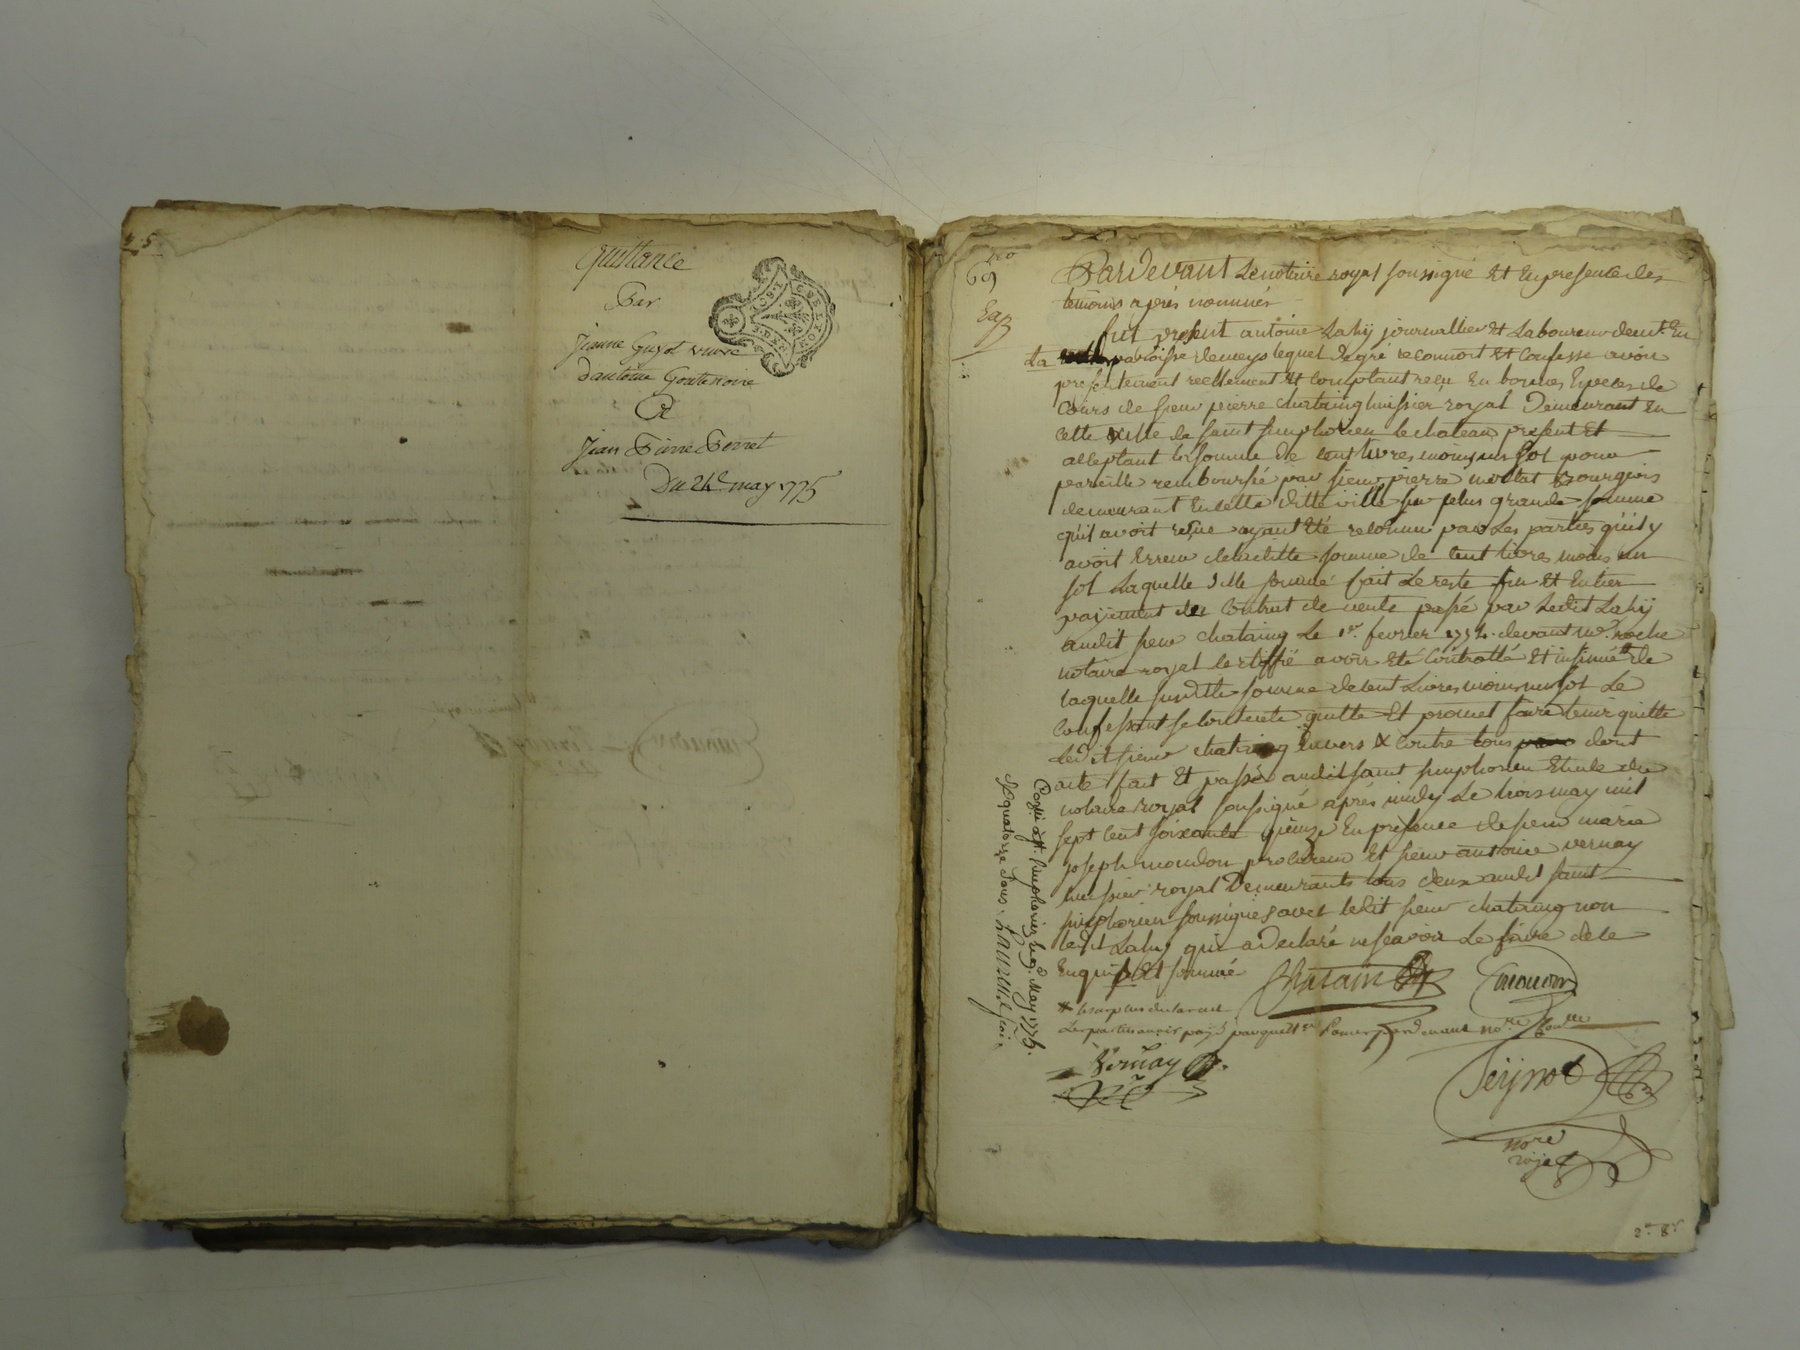 quittance
Par
Jeanne Guyot veuve
d'antoine Goutenoire
A
Jean Pierre Perret
Du 24 may 1775
69
Pardevant Le notaire royal soussigné Et En presence des
temoins aprés nommés
fut present antoine Lahij journallier & Laboureur demt. En
La paroisse de meys lequel de gré reconnoit Et Confesse avoir
presentement reellement Et Comptant reçu En bonnes Especes de
Cours de sieur pierre chataing huissier royal Demeurant En
cette ville de saint simphorien le chateau present Et
acceptant la somme de Cent livres moins un sol pour
pareille remboursée par sieur pierre Bourgeois
demeurant En cette ditte ville sur plus grande somme
qu'il avoit reçue ayant Eté reconnu par Les parties qu'il y
avoit Erreur de laditte somme de Cent livres moins un
sol Laquelle ditte somme fait Le reste fin Et Entier
payement du Contrat de vente passé par Ledit Lahij
audit sieur chataing Le 1er. fevrier devant me. roche
notaire royal Certiffié avoir Eté Controllé Et insinué # de
laquelle susditte somme de Cent Livres moins un sol Le
Confessant se Contente quitte Et promet faire tenir quitte
Ledit sieur chataing Envers & Contre tous dont
acte fait Et passé audit saint simphorien Etude du
notaire royal soussigné aprés midy Le trois may mil
sept Cent soixante quinze En presence de sieur marie
joseph moudon procureur Et sieur antoine vernay
huissier royal Demeurants tous deux audit saint
simphorien soussignés avec ledit sieur chataing non
ledit Lahij qui a Declaré ne sçavoir Le faire de ce
Enquis Et sommé
Chataing
Moudon
Vernay
Peijnot
nore
royal
Conlé. a St. simphorien le 9. May 1775.
Rs quatorze sous.
2e. 8e.